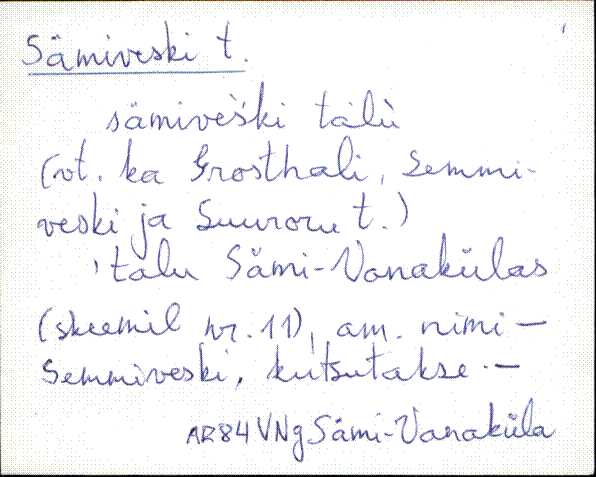 Sämiveski t.
sämivèški tàlù
(vt. ka Grosthali, Semmi-
veski ja Suuroru t.)
'talu Sämi-Vanakülas
(skeemil nr. 11), am. nimi —
Semmiveski, kutsutakse. —
AR84 VNg Sämi-Vanaküla